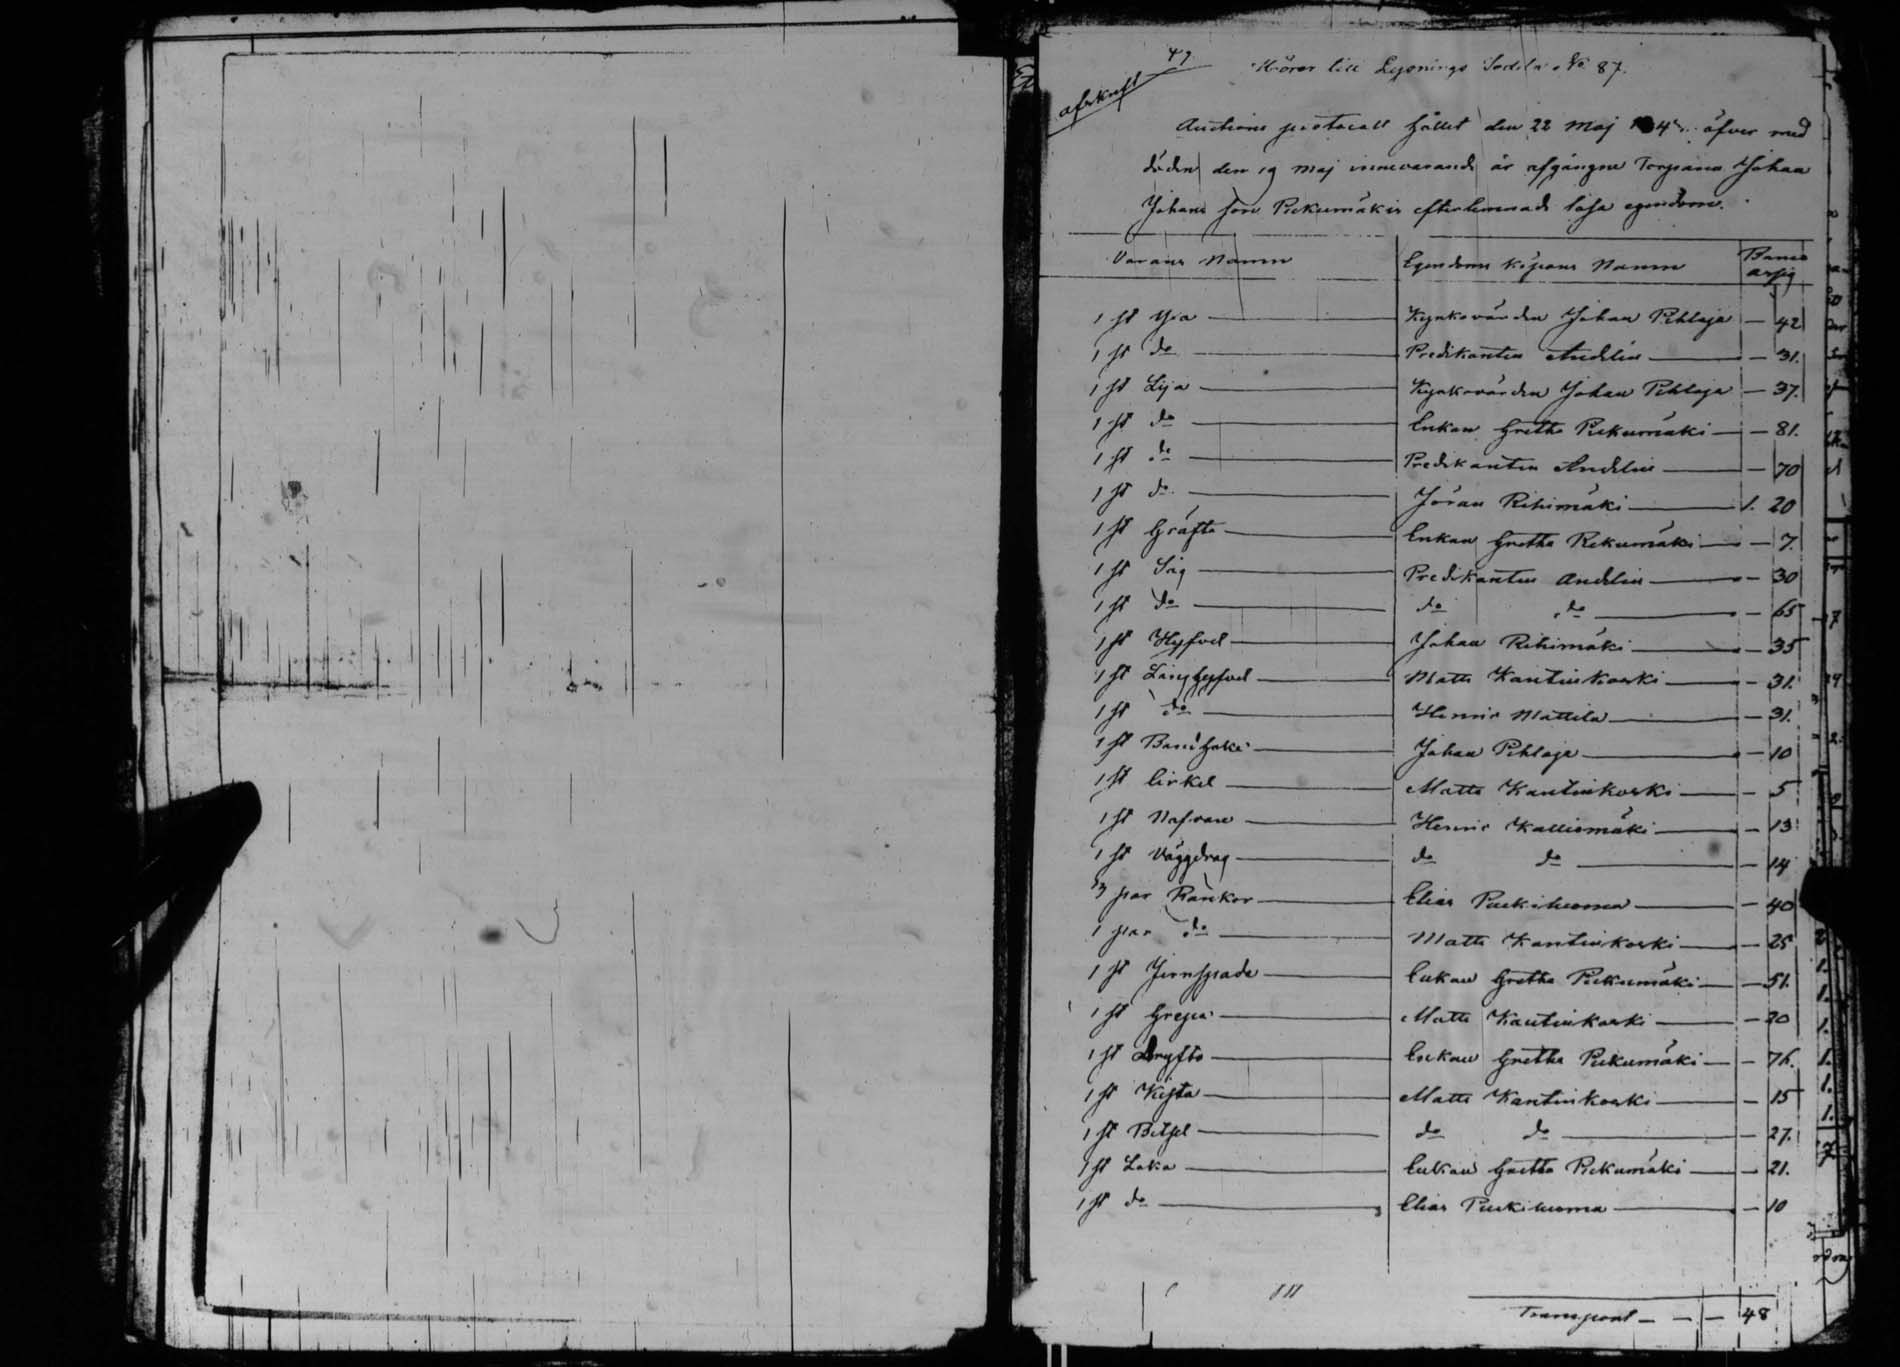 49
afskrift
Hörer till Lysnings Sedeln No 87.
Auctions protocoll hållet den 22 Maj öfver med
döden den 19 Maj innevarande år afgångne Torparen Johan
Johans son Piekumäkis efterlemnade lösa egendom.
Varans Namn Egendoms köpares Namn Banco
1 st Yxa — Kyrkovärden Johan Pihlaja — 42
1 st do — Predikanten Andelin — 31.
1 st Lija — Kyrkovärden Johan Pihlaja — 37.
1 st do — Enkan Gretha Piekumäki — 81.
1 st do — Predikanten Andelin — 70
1 st do — Jöran Rihimäki — 1. 20
1 st Gräfta — Enkan Gretha Piekumäki — 7.
1 st Såg — Predikanten Andelin — 30
1 st do — do do — 65
1 st Hyfvel — Johan Rihimäki — 35
1 st Långhyfvel — Matts Kantinkoski — 31.
1 st do — Henric Mattila — 31.
1 st Bandhake — Johan Pihlaja — 10
1 st Cirkel — Matts Kantinkoski — 5
1 st Nafvare — Henric Kalliomäki — 13
1 st Väggdrag — do do — 14
3 par Rankor — Elias Puskiluoma — 40
1 par do — Matts Kantinkoski — 25
1 st Jernspade — Enkan Gretha Piekumäki — 51.
1 st Grepa — Matts Kantinkoski — 20
1 st — Enkan Gretha Piekumäki — 76.
1 st Kista — Matts Kantinkoski — 15
1 st Betsel — do do — 27.
1 st Loka — Enkan Gretha Piekumäki — 21.
1 st do — Elias Puskiluoma — 10
Transport — — — 48